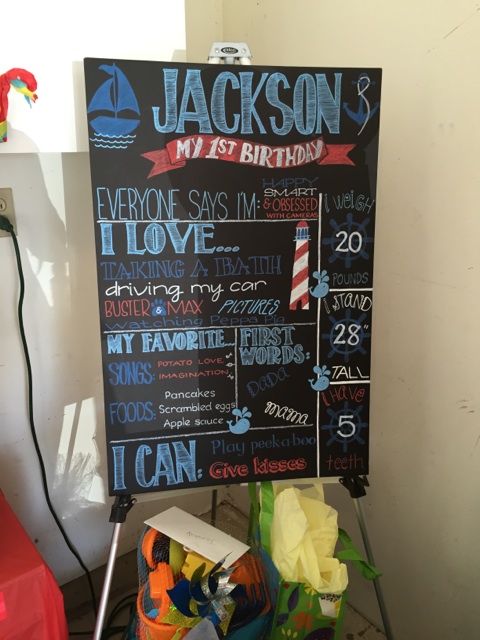 JACKSON
MY 1ST BIRTHDAY
EVERYONE SAYS I'M: HAPPY
SMART
& OBSESSED
WITH CAMERAS
I LOVE...
TAKING A BATH
driving my car
BUSTER & MAX PICTURES
Watching Peppa Pig
MY FAVORITE
SONGS: POTATO LOVE
IMAGINATION
FOODS: Pancakes
Scrambled eggs
Apple sauce
FIRST
WORDS:
Dada
mama
I CAN: Play peekaboo
Give kisses
I WEIGH
20
POUNDS
I STAND
28"
TALL
I HAVE
5
teeth